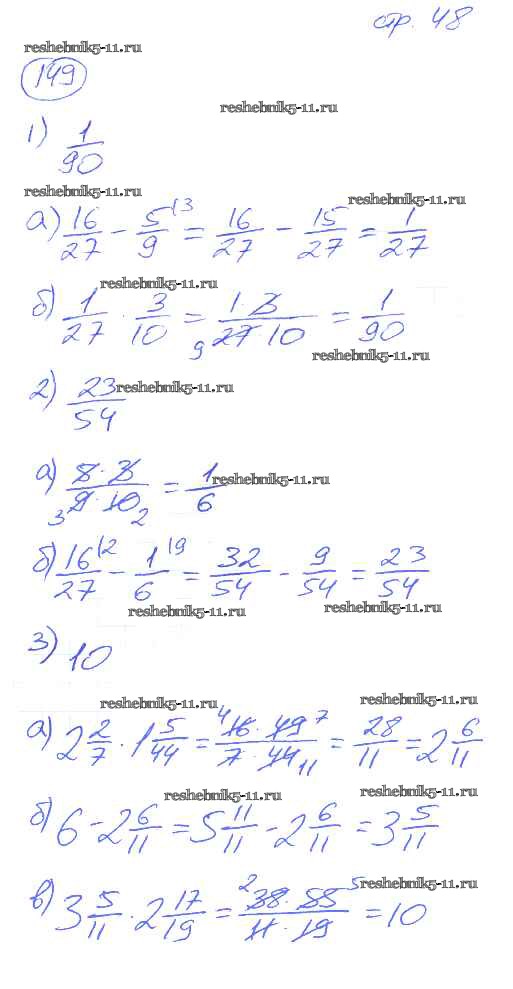 стр. 48
reshebnik5-11.ru
149
reshebnik5-11.ru
1) 1/90
reshebnik5-11.ru
reshebnik5-11.ru
а) 16/27 - 5/9 \3 = 16/27 - 15/27 = 1/27
reshebnik5-11.ru
б) 1/27 · 3/10 = 1·3/27·10 9 = 1/90
reshebnik5-11.ru
2) 23/54
reshebnik5-11.ru
а) 5·3/9·10 3 2 = 1/6
reshebnik5-11.ru
б) 16/27 \2 - 1/6 \9 = 32/54 - 9/54 = 23/54
reshebnik5-11.ru
reshebnik5-11.ru
3) 10
reshebnik5-11.ru
reshebnik5-11.ru
а) 2 2/7 · 1 5/44 = 4 16·49 7/7·44 11 = 28/11 = 2 6/11
reshebnik5-11.ru
reshebnik5-11.ru
б) 6 - 2 6/11 = 5 11/11 - 2 6/11 = 3 5/11
reshebnik5-11.ru
в) 3 5/11 · 2 17/19 = 2 38·55 5/11·19 = 10